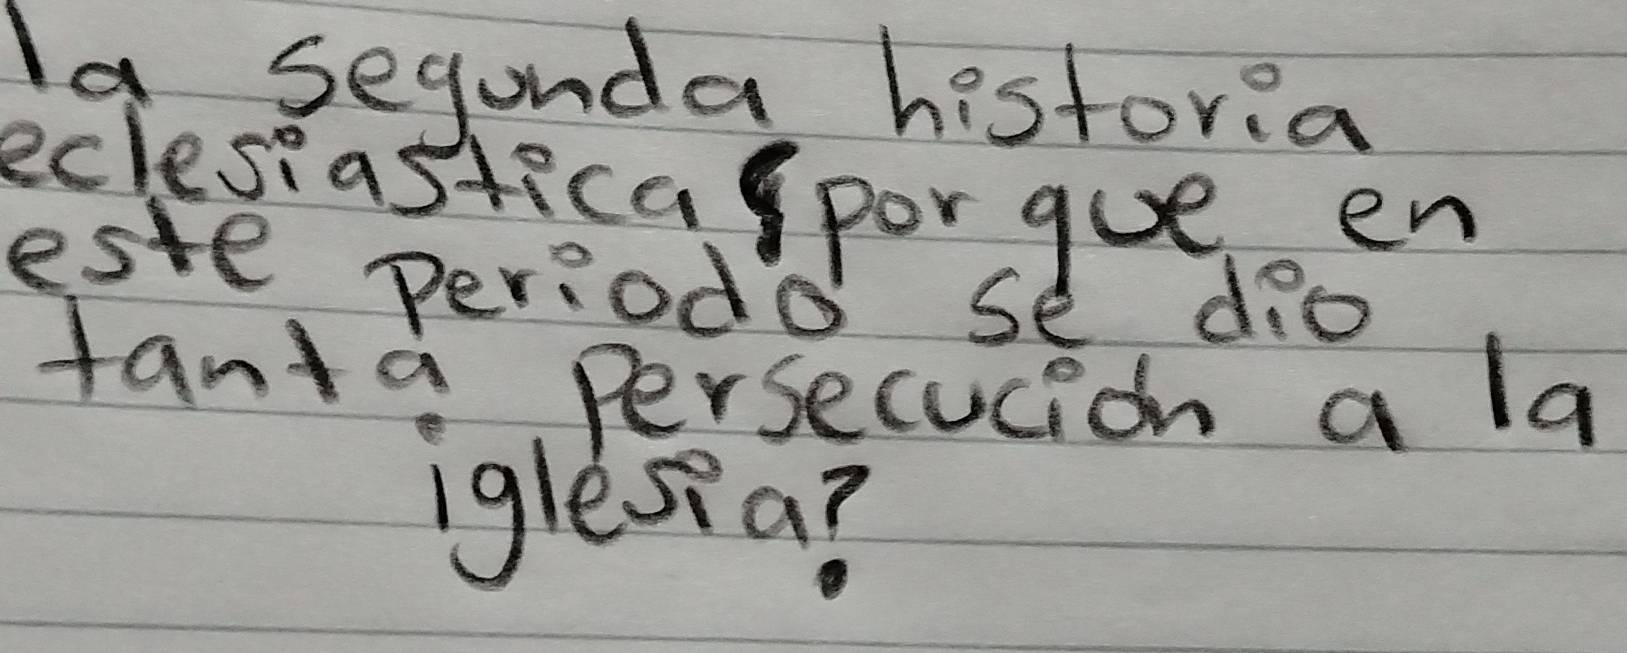 la segunda historia
eclesiastica por que en
este periodo se dio
tanta persecución a la
iglesia?